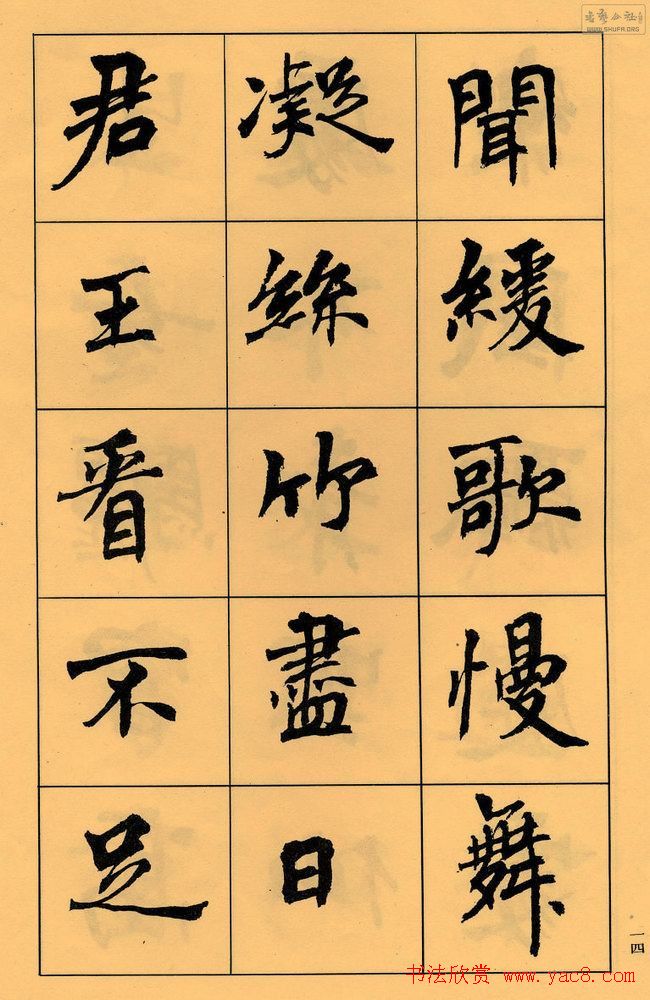 聞緩歌慢舞
凝絲竹盡日
君王看不足
一四
书法欣赏 www.yac8.com
WWW.SHUFA.ORG